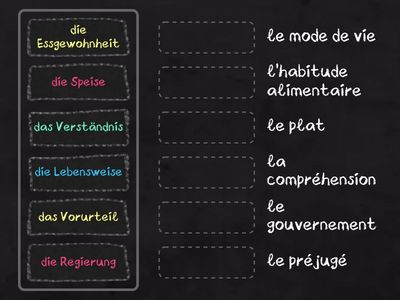 die
Essgewohnheit
die Speise
das Verständnis
die Lebensweise
das Vorurteil
die Regierung
le mode de vie
l'habitude
alimentaire
le plat
la
compréhension
le
gouvernement
le préjugé